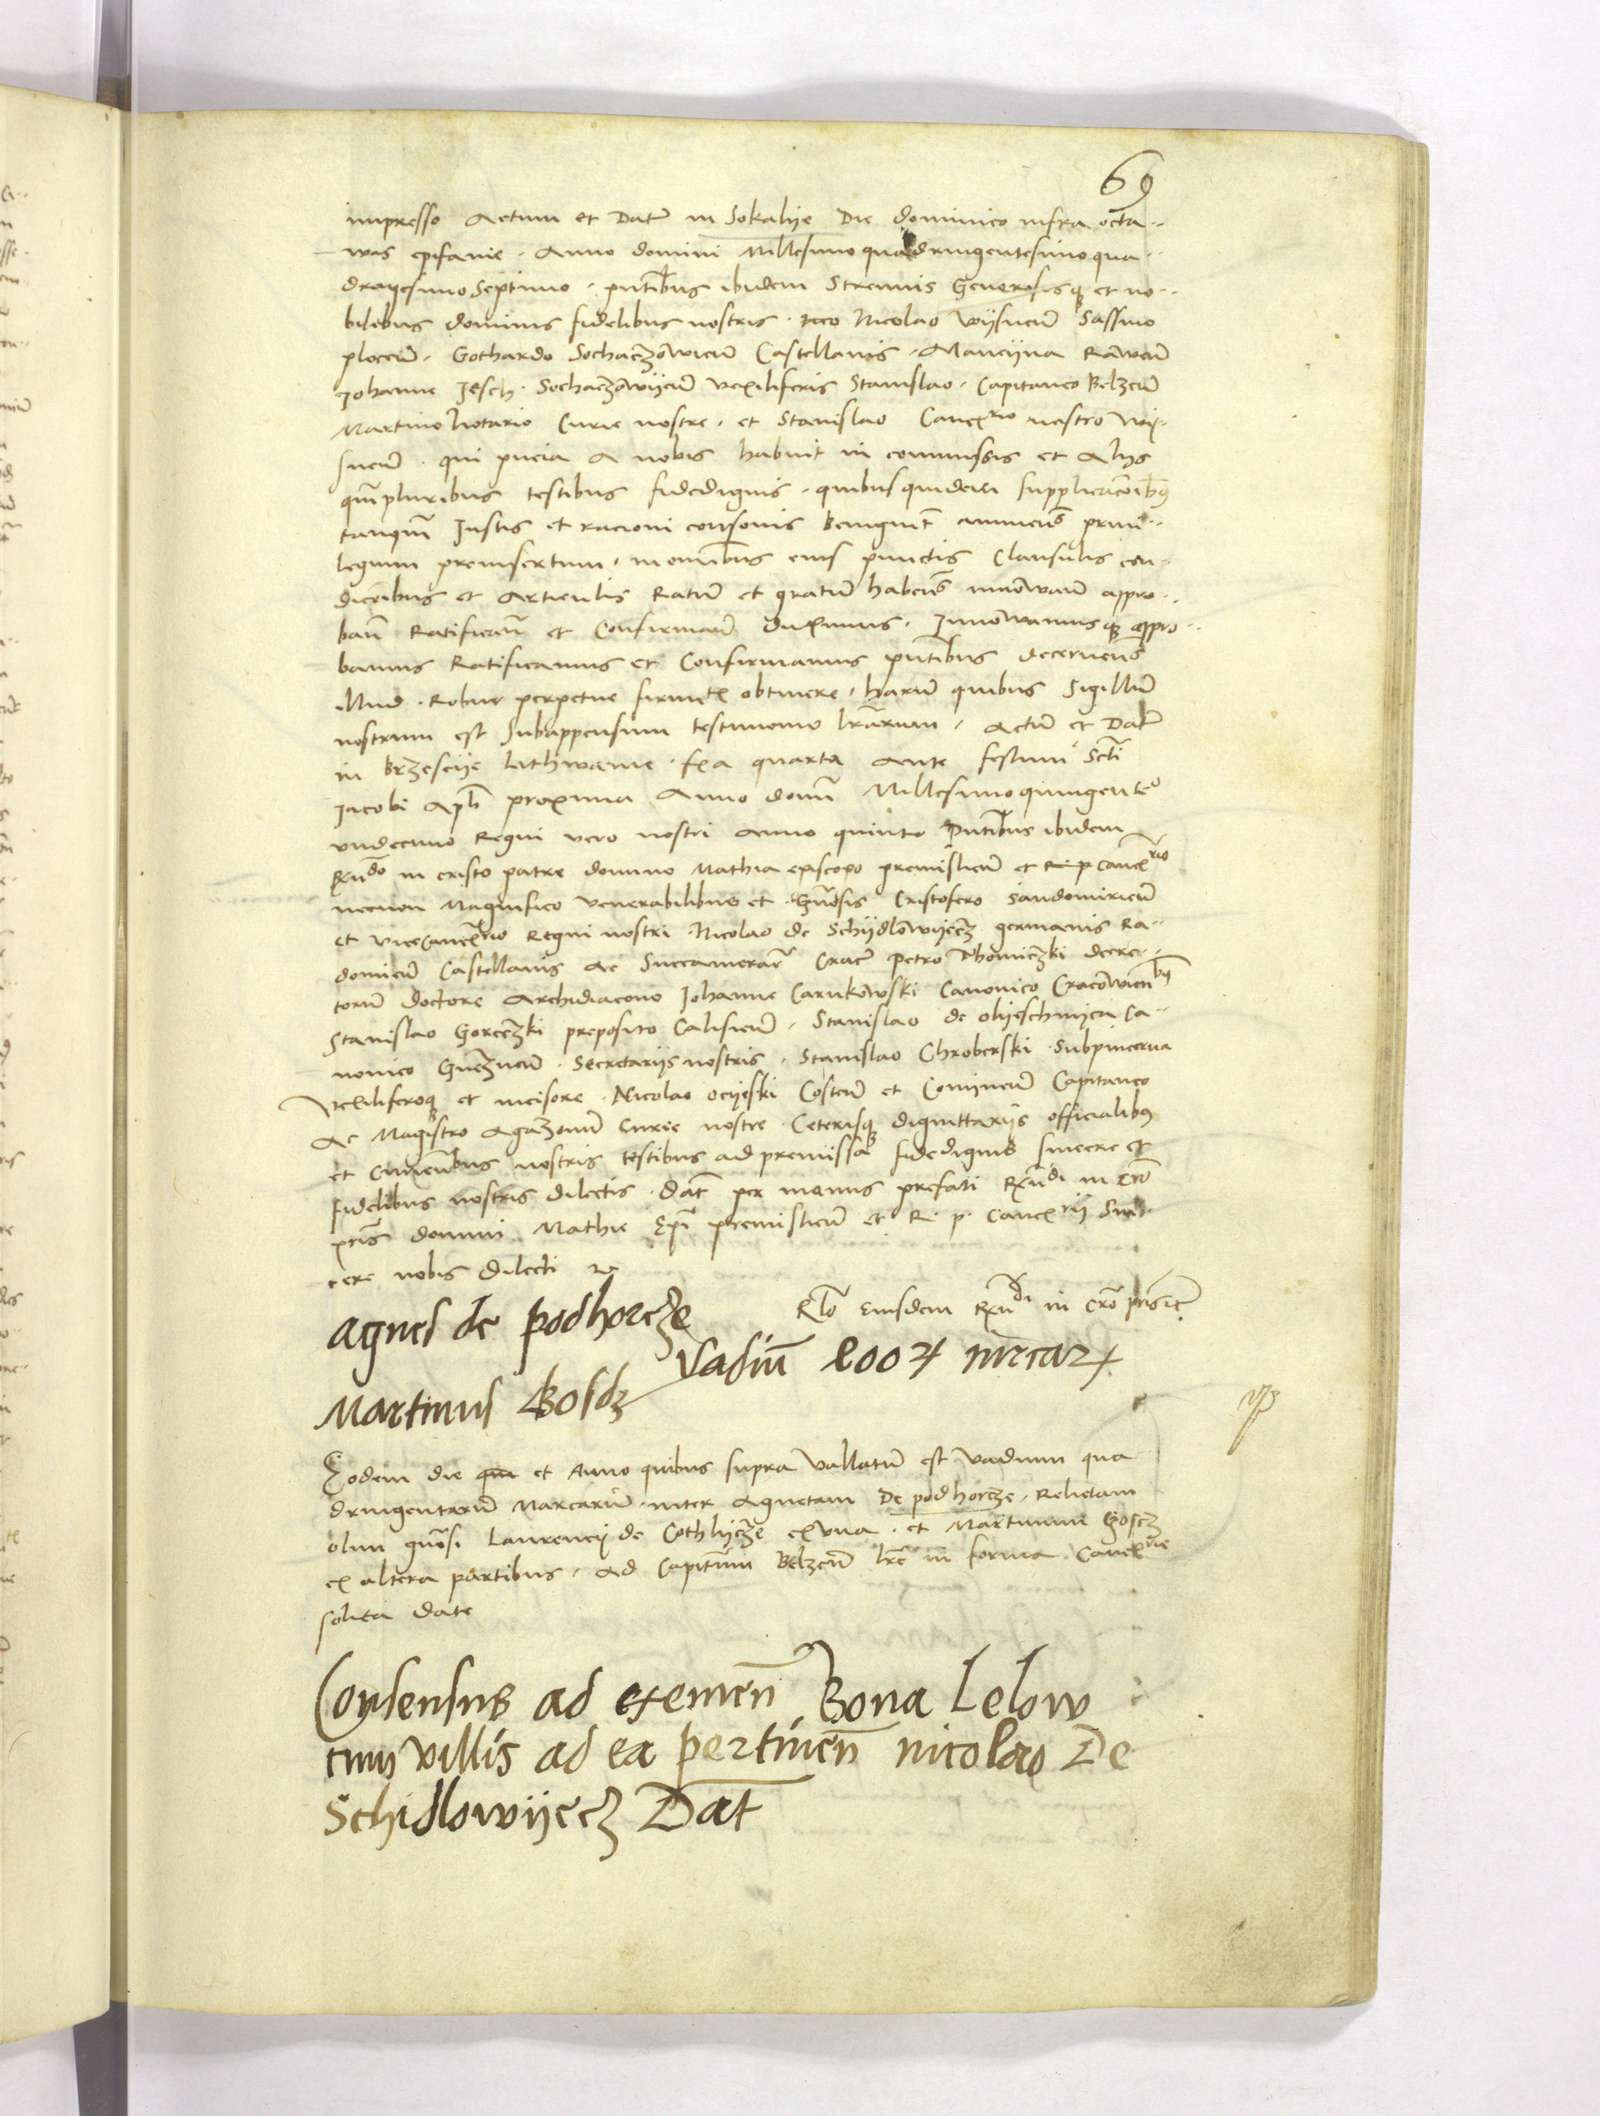 69
impresso Actum et Datū in Sokalije Die dominico infra octa-
was epifanie. Anno domini Millesimo quadringentesimo qua-
dragesimo Septimo. pn̄tibus ibidem Strenuis Generosisqꝫ et no-
bilibus dominis fidelibus nostris. Nicolao Wijsneū Sassino
ploceū. Gothardo Sochaczowieū Castellanis. Mancijna Raweū
Johanne Jesch. Sochaczowijeū vexiliferis Stanislao. Capitaneo Belzeū
Martino Notario Curie nostre. et Stanislao Cancrio nostro Wis-
sneū. qui pn̄cia A nobis habuit in commissis et Alijs
qm̄pluribus testibus fidedignis. quibus quidem supplicacōibꝫ
tanqm̄ Justis et racioni consonis benignit̄ annuen̄s priui-
legium preinsertum. in omībus eius punctis Clausulis con-
dicōibus et Articulis Ratū et gratū haben̄s innowan̄ appro-
ban̄ Ratifican̄ et Confirman̄ duximus. Innowamusqꝫ appro-
bamus Ratificamus et Confirmamus pn̄tibus decernen̄s
illud. Robur perpetue firmit̄ obtinere. harū quibus Sigillū
nostrum est Subappensum testimonio lr̄arum. Actū et Datū
in Brzescije Lithwanie. fr̄a quarta Ante festum Scti
Jacobi Apli proxima Anno domī Millesimoquingento
vndecimo Regni vero nostri Anno quinto Pn̄tibus ibidem
Rn̄do in cristo patre domino Mathia episcopo premislieū et R p cancrio
necnon Magnifico venerabilibus et Gn̄osis Cristofero Sandomirieū
et viceCancrio Regni nostri. Nicolao de Schijdlowijecz germanis Ra-
domieū Castellanis Ac Succamerar̄ Crac̄ Petro Thomiczki decre-
torū doctore Archidiacono Johanne Carnkowski Canonico Cracowien̄bꝫ
Stanislao Goreczki preposito Calisieū. Stanislao de Olijeschnijca Ca-
nonico Gneznen̄. Secretarijs nostris. Stanislao Chroberski Subpincerna
Vexiliferoqꝫ et incisore. Nicolao Ocijeski Costeū et Conijneū Capitaneo
Ac Magistro Agazonū Curie nostre. Ceterisqꝫ dignittarijs officialibꝫ
et Curien̄bus nostris testibus ad premissa fidedignis sincere et
fidelibus nostris dilectis. Dat̄ per manus prefati Rn̄di in Cro
pris̄ domini Mathie Epi premislieū et R. p. Cancrij Sin-
cere nobis dilecti
Rlo Eiusdem Rn̄di in Cro pris ꝛc̄
Agnes de podhorcze
Vadiū 400ꝝ mrcaꝝ
Martinus Goscz
Eodem die et Anno quibus supra Vallatū est vadium qua
dringentarū Marcarū. inter Agnetam De podhorcze. Relictam
olim gn̄osi Laurencij de Cothlijcze ex vna. et Martinum Goscz
ex altera partibus. Ad Capitn̄m Belzeū lr̄e in forma Cancrie
solita date
Consensus ad exemen̄ Bona Lelow
cum villis ad ea pertinen̄ nicolao De
Schidlowijecz Dat̄